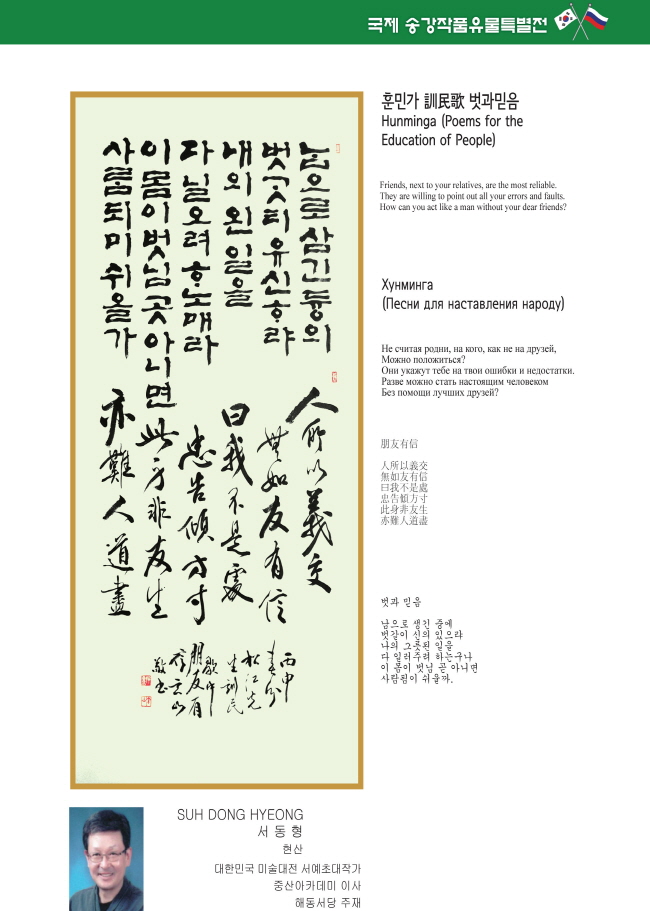 국제 송강작품유물특별전
ᄂᆞᆷ으로삼긴듕의
벗ᄀᆞᆺ티유신ᄒᆞ랴
내의왼일을
다닐오려ᄒᆞ노매라
이몸이벗님곳아니면
사ᄅᆞᆷ되미쉬올가
人所以義交
無如友有信
曰我不是處
忠告傾方寸
此身非友生
亦難人道盡
丙申
松江先
生訓民
歌中
朋友有
信玄山
敬書
훈민가 訓民歌 벗과믿음
Hunminga (Poems for the
Education of People)
Friends, next to your relatives, are the most reliable.
They are willing to point out all your errors and faults.
How can you act like a man without your dear friends?
Хунминга
(Песни для наставления народу)
Не считая родни, на кого, как не на друзей,
Можно положиться?
Они укажут тебе на твои ошибки и недостатки.
Разве можно стать настоящим человеком
Без помощи лучших друзей?
朋友有信
人所以義交
無如友有信
曰我不是處
忠告傾方寸
此身非友生
亦難人道盡
벗과 믿음
남으로 생긴 중에
벗같이 신의 있으랴
나의 그릇된 일을
다 일러주려 하는구나
이 몸이 벗님 곧 아니면
사람됨이 쉬울까.
SUH DONG HYEONG
서 동 형
현산
대한민국 미술대전 서예초대작가
중산아카데미 이사
해동서당 주재